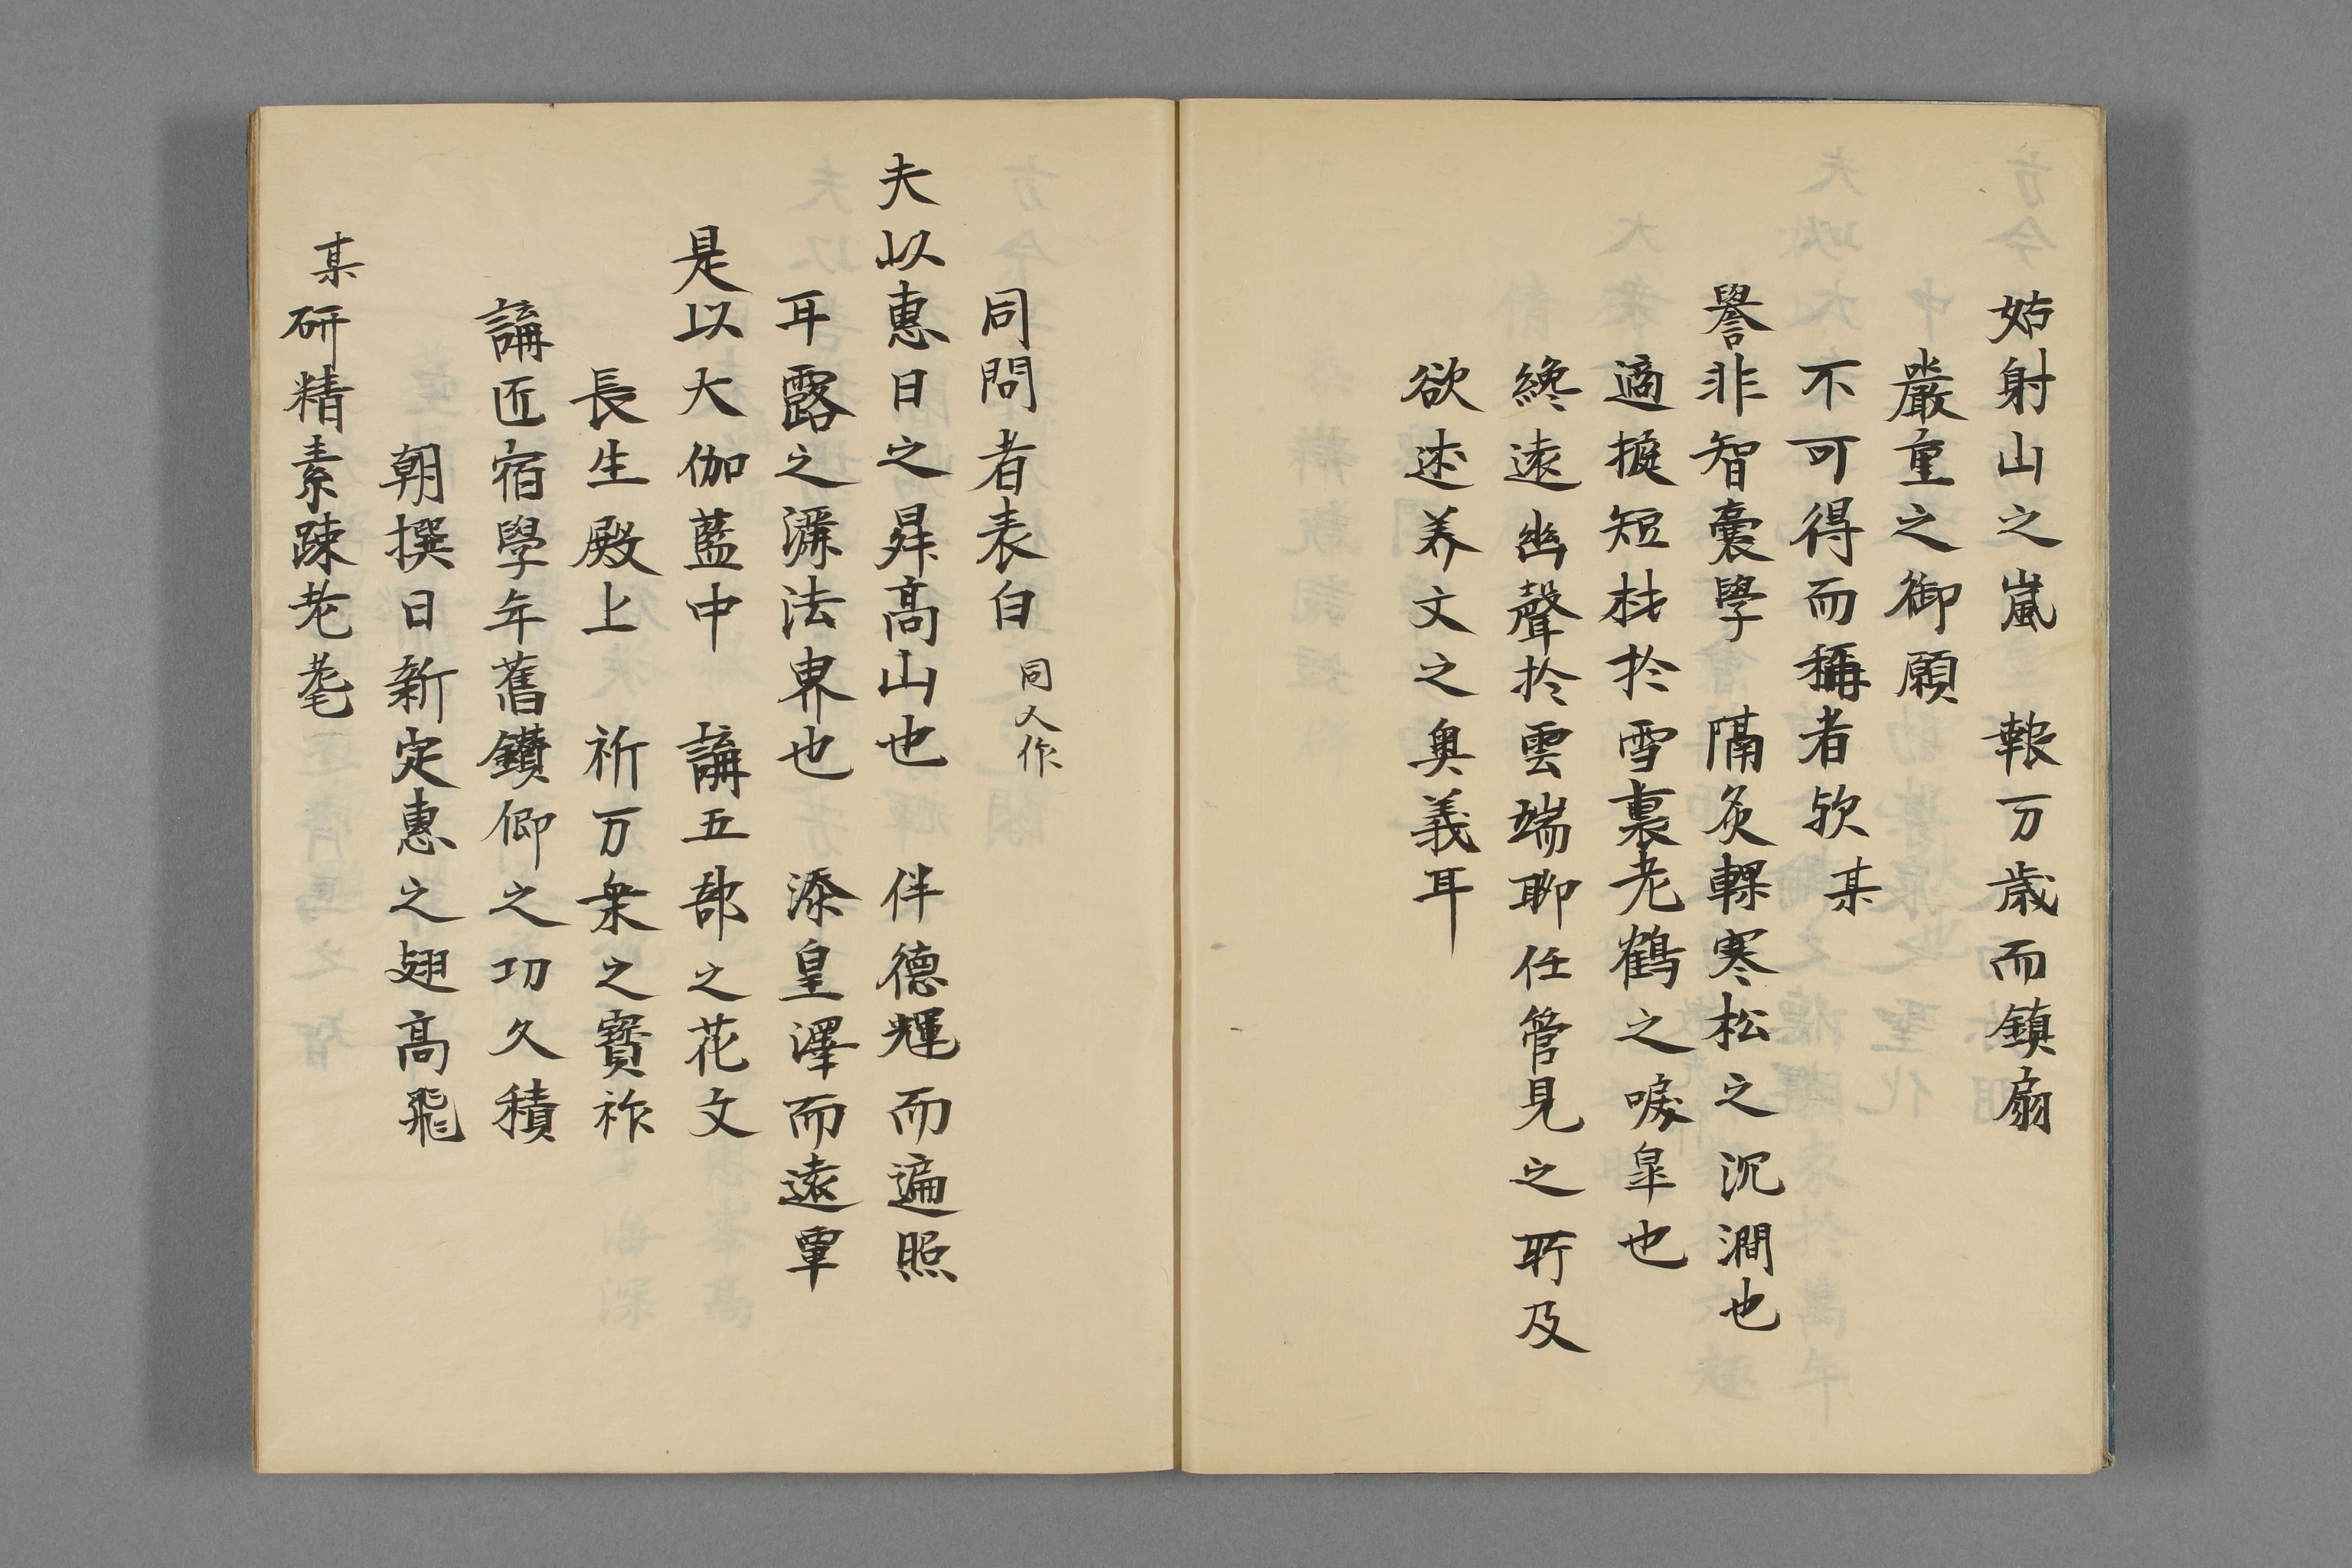 姑射山之嵐　報万歳而鎮扇
嚴重之御願
不可得而稱者欤某
譽非智囊學　隔炙輠寒松之沉澗也
適擬短材於雪裏老鶴之唳皐也
終遠幽聲於雲端聊任管見之所及
欲述养文之奥義耳
同問者表白　同人作
夫以惠日之昇高山也　伴德輝而遍照
耳露之灑法界也　添皇澤而遠覃
是以大伽藍中　講五部之花文
長生殿上　祈万乗之寶祚
講匠宿學年舊鑽仰之功久積
朝撰日新定惠之翅高飛
某研精素踈老耄